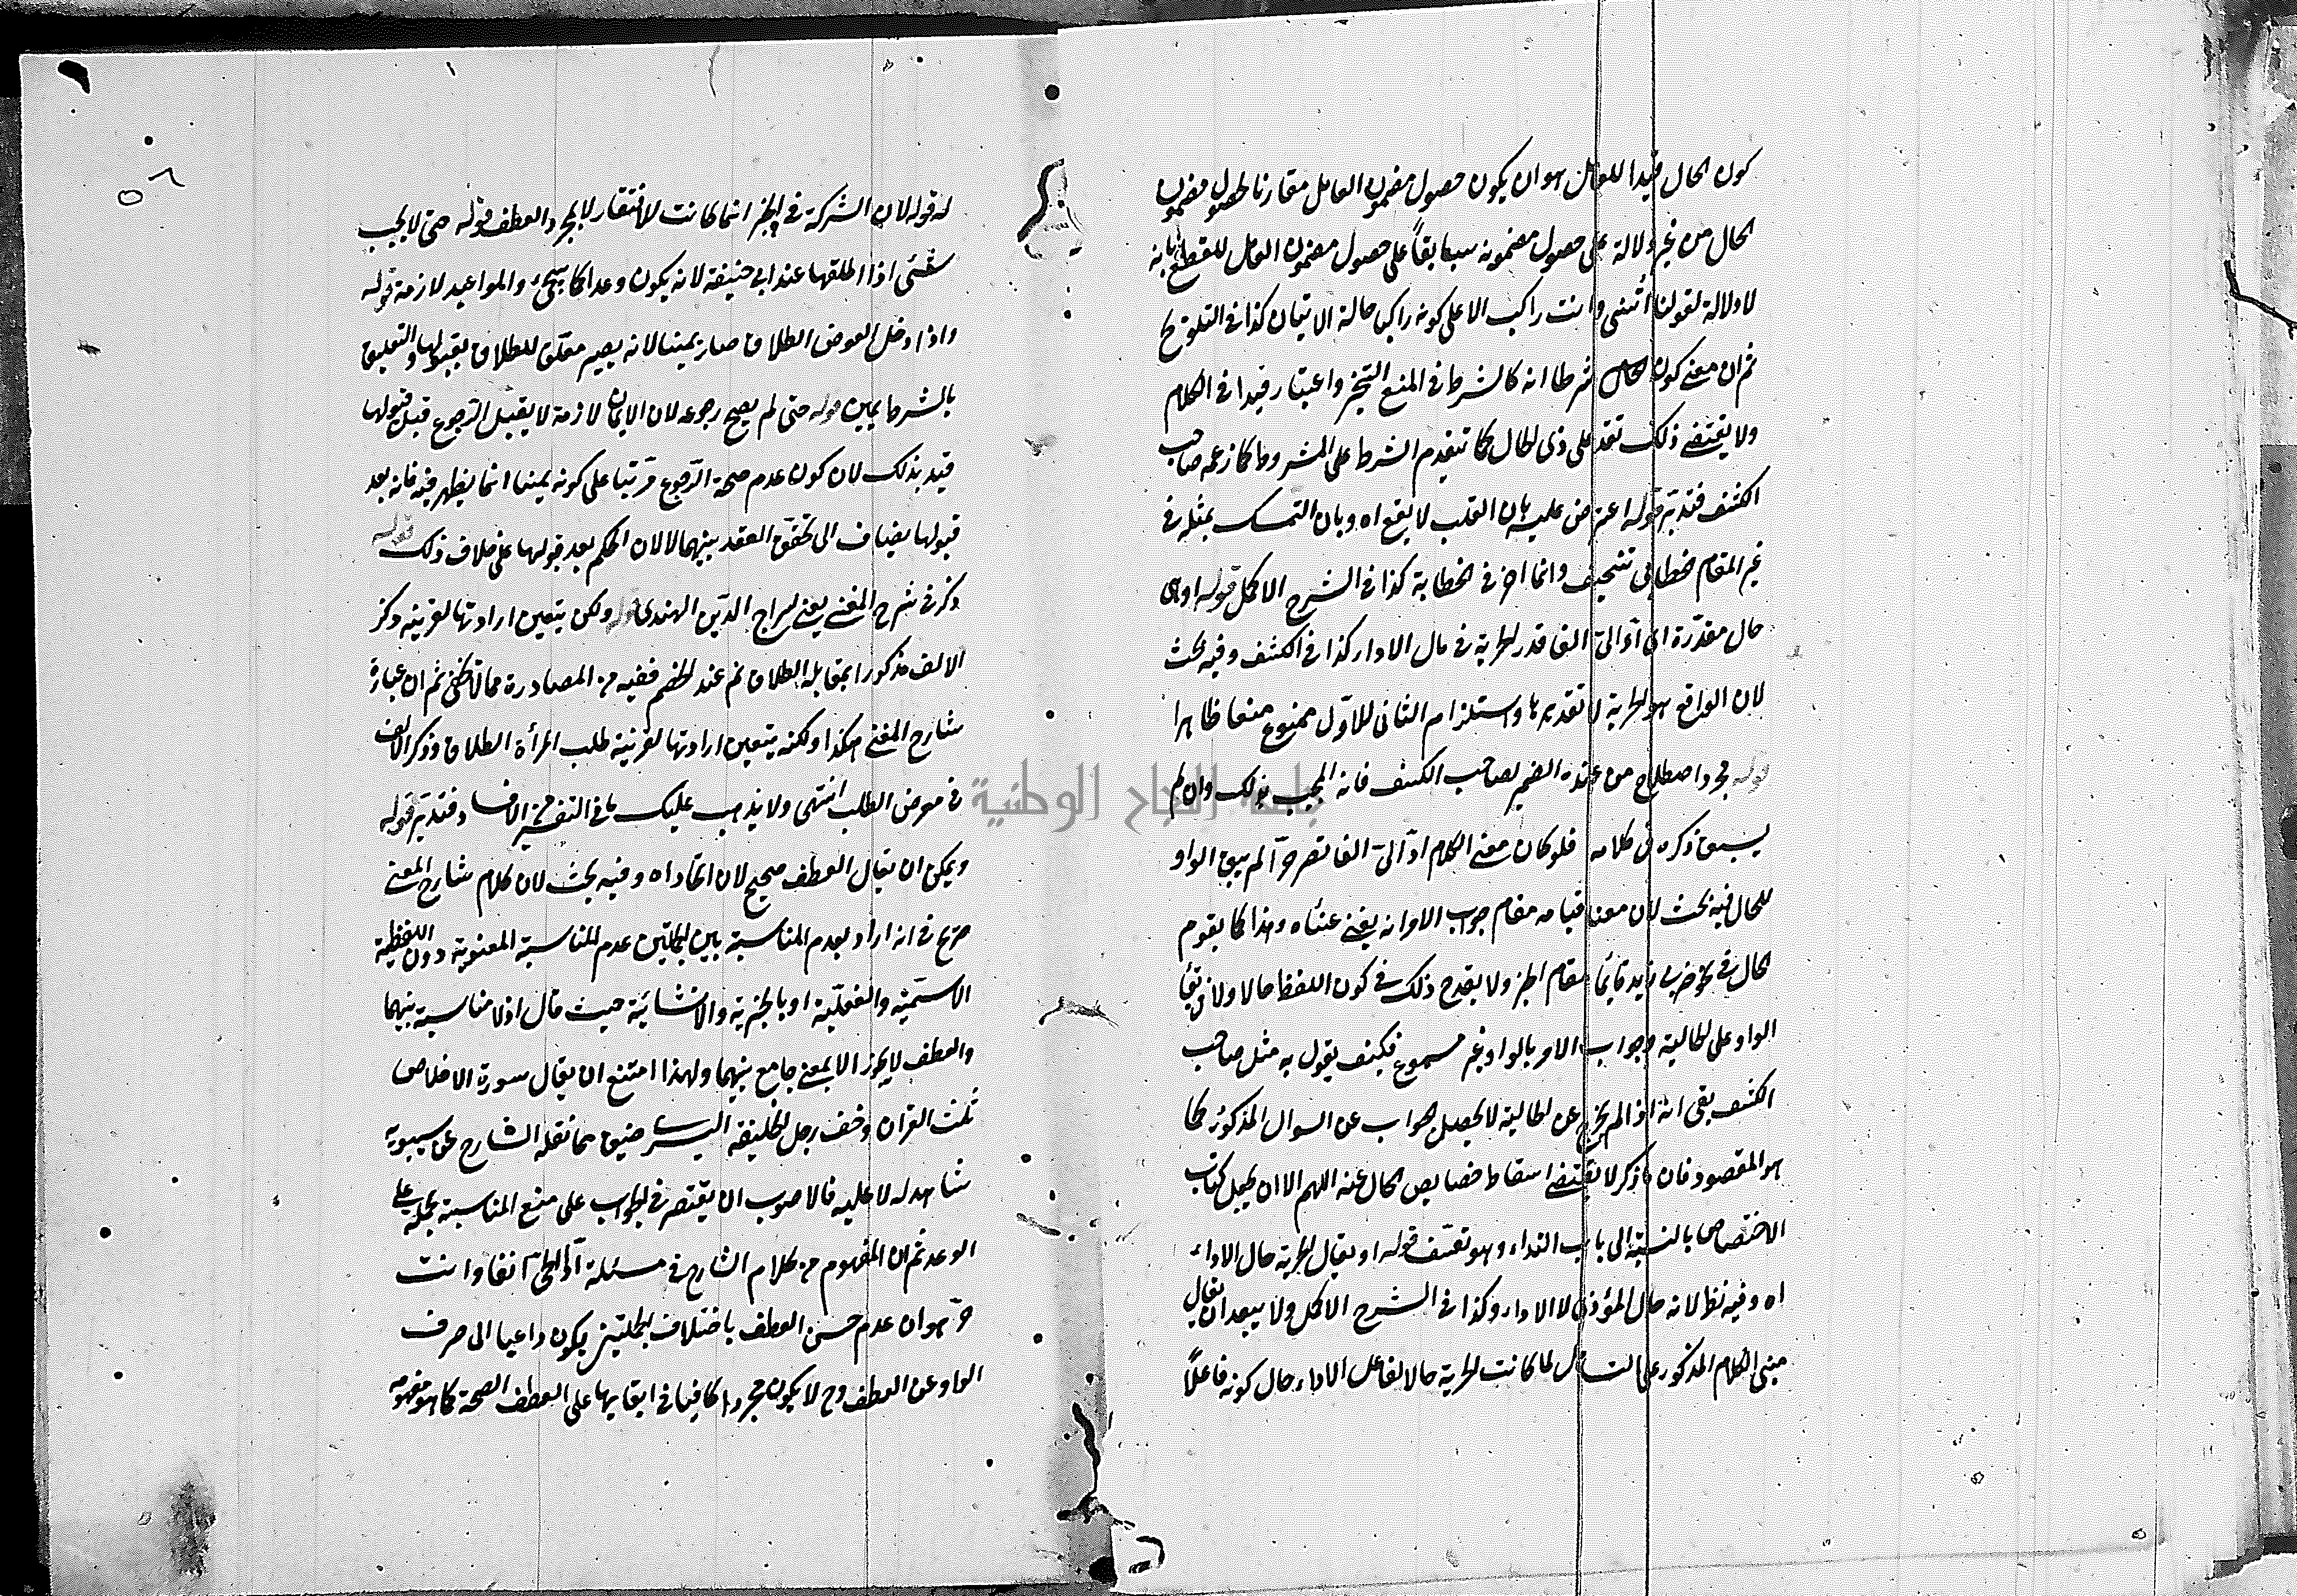 كون الحال قيدا للعامل هو ان يكون حصول مضمون العامل مقارنا لحصول مضمون
الحال من غير دلالة على حصول مضمونه سابقاً على حصول مضمون العامل للقطع بانه
لا دلالة لقولنا ائتنى وانت راكب الا على كونه راكبا حالة الاتيان كذا فى التلويح
ثم ان معنى كون الحال شرطا انه كالشرط فى المنع التنجيز واعتباره قيدا فى الكلام
ولا يقتضى ذلك تقدمه على ذى الحال كما تتقدم الشرط على المشروط كما زعمه صاحب
الكشف فتدبر قوله اعترض عليه بان القلب لا يقع اه وبان التمسك بمثله فى
غير المقام الخطابى وانما اخر فى الخطابة كذا فى الشرح الاكمل قوله او هى
حال مقدرة اى ادّ الىّ الفا قدر الحرية فى مال الاداء كذا فى الكشف وفيه بحث
لان الواقع هو الحرية لا تقديرها واستلزام الثانى للاوّل ممنوع منعا ظاهرا
قوله مجرد اصطلاح من عنده الضمير لصاحب الكشف فانه المجيب بذلك وان لم
يسبق ذكره فى كلامه فلو كان معنى الكلام ادّ الىّ الفا تصر حرّا لم يبق الواو
للحال فيه بحث لان معنا قيامه مقام جواب الامر انه يغنى غناه وهذا كما يقوم
الحال فى نحو ضربى زيد قايما مقام الخبر ولا يقدح ذلك فى كون اللفظ حالا ولا فى بقاء
الواو على الحالية وجواب الامر بالواو غير مسموع فكيف يقول به مثل صاحب
الكشف بقى انه اذا لم يخرج عن الحالية لا يحصل الجواب عن السوال المذكور كما
هو المقصود فان ما ذكر لا يقتضى اسقاط خصايص الحال عنه اللهم الا ان يجعل كتاب
الاختصاص بالنسبة الى باب النداء وهو تعسّف قوله او يقال الحرية حال الاداء
اه وفيه نظر لانه حال المؤدى لا الاداء وكذا فى الشرح الاكمل ولا يبعد ان يقال
مبنى الكلام المذكور على التسامح لما كانت الحرية حالا لفاعل الاداء حال كونه فاعلاً
له قوله لان الشركة فى الخبر انما كانت للافتقار لا لمجرد العطف قوله حتى لا يجب
شئ اذا اطلقها عند ابى حنيفة لانه يكون وعدا كما سيجئ والمواعيد لازمة قوله
واذا دخل العوض الطلاق صار يمينا لانه يصير معلق للطلاق بقبولها والتعليق
بالشرط يمين قوله حتى لم يصح رجوعه لان الايمان لازمة لا يقبل الرجوع قبل قبولها
قيد بذلك لان كون عدم صحة الرجوع مرتبا على كونه يمينا انما يظهر فيه فانه بعد
قبولها يضاف الى تحقق العقد بينهما لا لان الحكم بعد قبولها على خلاف ذلك قوله
ذكر فى شرح المغنى يعنى لسراج الدين الهندى قوله ولكن يتعين ارادتها لقرينة ذكر
الالف مذكورا بمقابلة الطلاق ثم عند الخصم ففيه من المصادرة مما لا يخفى ثم ان عبارة
شارح المغنى هكذا ولكنه يتعين ارادتها لقرينة طلب المرأة الطلاق وذكر الالف
فى معرض الطلب انتهى ولا يذهب عليك ما فى التفسير من الفساد فتدبر قوله
ويمكن ان يقال العطف صحيح لان اتحاد اه وفيه بحث لان كلام شارح المغنى
صريح فى انه اراد بعدم المناسبة بين الجملتين عدم المناسبة المعنوية دون اللفظية
الاسميّة والفعليّة او بالخبرية والانشائية حيث قال اذ لا مناسبة بينهما
والعطف لا يجوز الا بمعنى جامع بينهما ولهذا امتنع ان يقال سورة الاخلاص
ثلث القران وخف رجل الخليفة اليسرى ضيق مما نقله الشارح عن سيبويه
شاهد له لا عليه فالاصوب ان يقتصر فى الجواب على منع المناسبة بحمله على
الوعد ثم ان المفهوم من كلام الشارح فى مسئلة ادّ الىّ الفا وانت
حرّ هو ان عدم حسن العطف باختلاف الجملتين يكون داعيا الى صرف
الواو عن العطف وح لا يكون مجرد كافيا فى ابقايها على العطف الصحة كما هو مفهومه
جامعة النجاح الوطنية